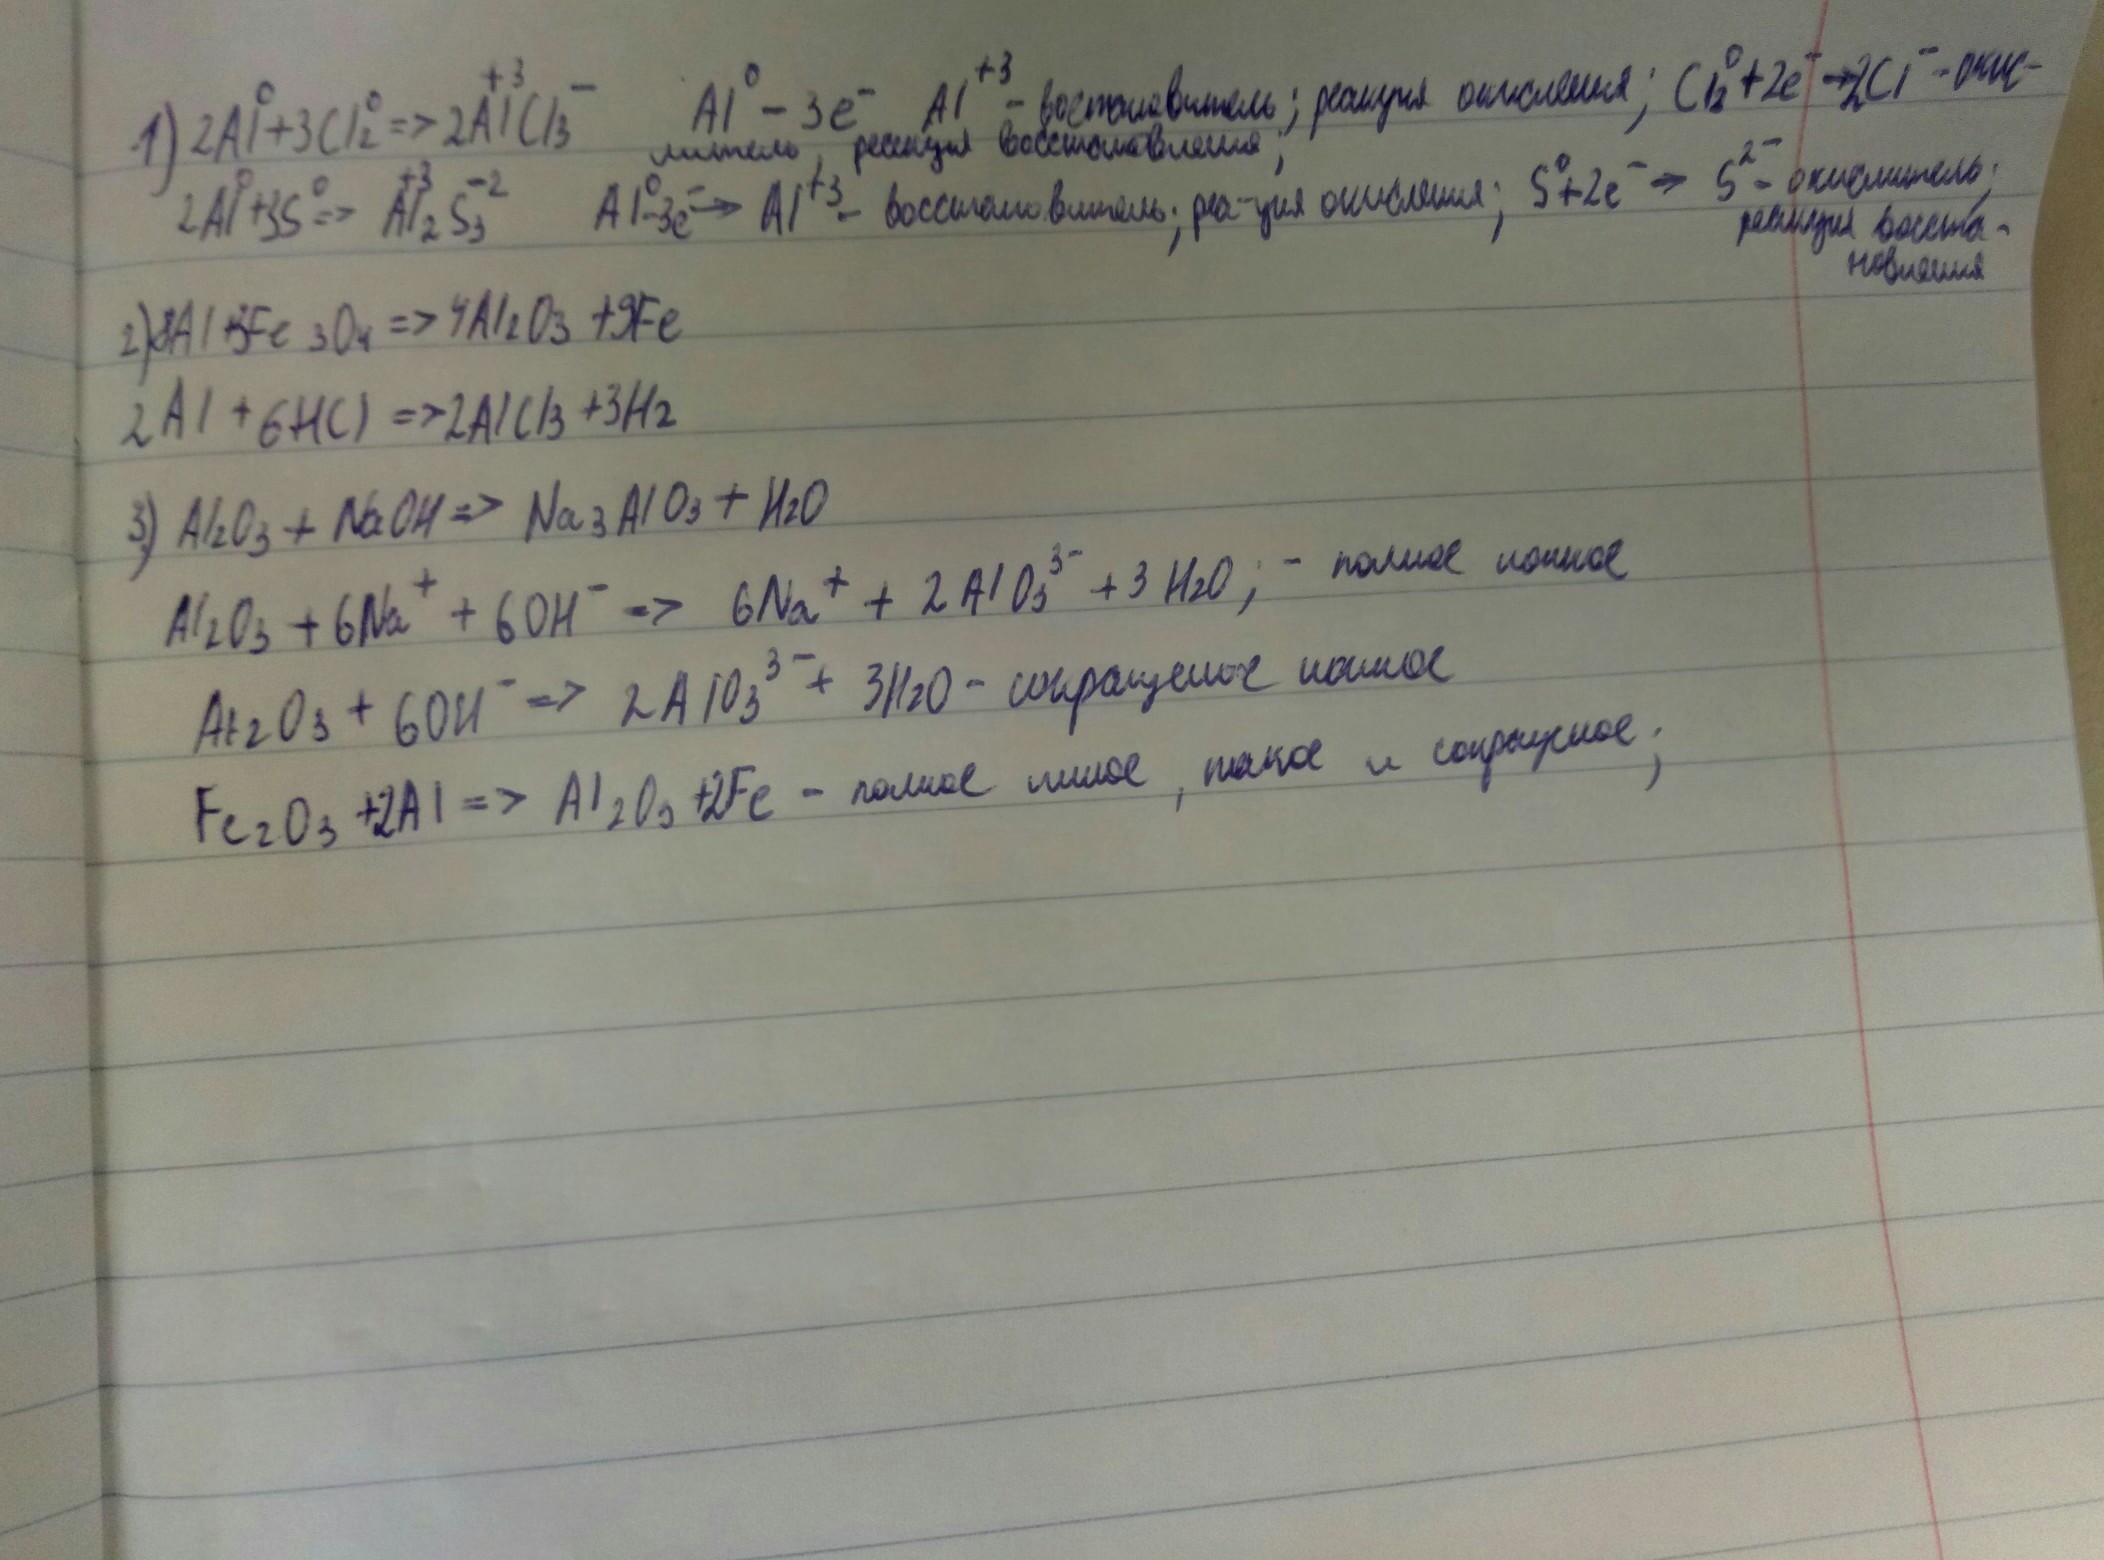 1) 2Al⁰+3Cl₂⁰=>2Al⁺³Cl₃⁻ Al⁰-3e⁻ Al⁺³-востановитель; реакция окисления; Cl₂⁰+2e⁻→2Cl⁻-окис-
литель, реакция восстановления;
2Al⁰+3S⁰=> Al₂⁺³S₃⁻² Al⁰-3e⁻→ Al⁺³- восстановитель; реа-ция окисления; S⁰+2e⁻→ S²⁻- окислитель;
реакция восста-
новления
2) 8Al+3Fe₃O₄=>4Al₂O₃+9Fe
2Al+6HCl=>2AlCl₃+3H₂
3) Al₂O₃+NaOH=> Na₃AlO₃+H₂O
Al₂O₃+6Na⁺+6OH⁻=> 6Na⁺+2AlO₃³⁻+3H₂O; - полное ионное
Al₂O₃+6OH⁻=> 2AlO₃³⁻+3H₂O- сокращеное ионное
Fe₂O₃+2Al=> Al₂O₃+2Fe - полное ионое, такое и сокращеное;